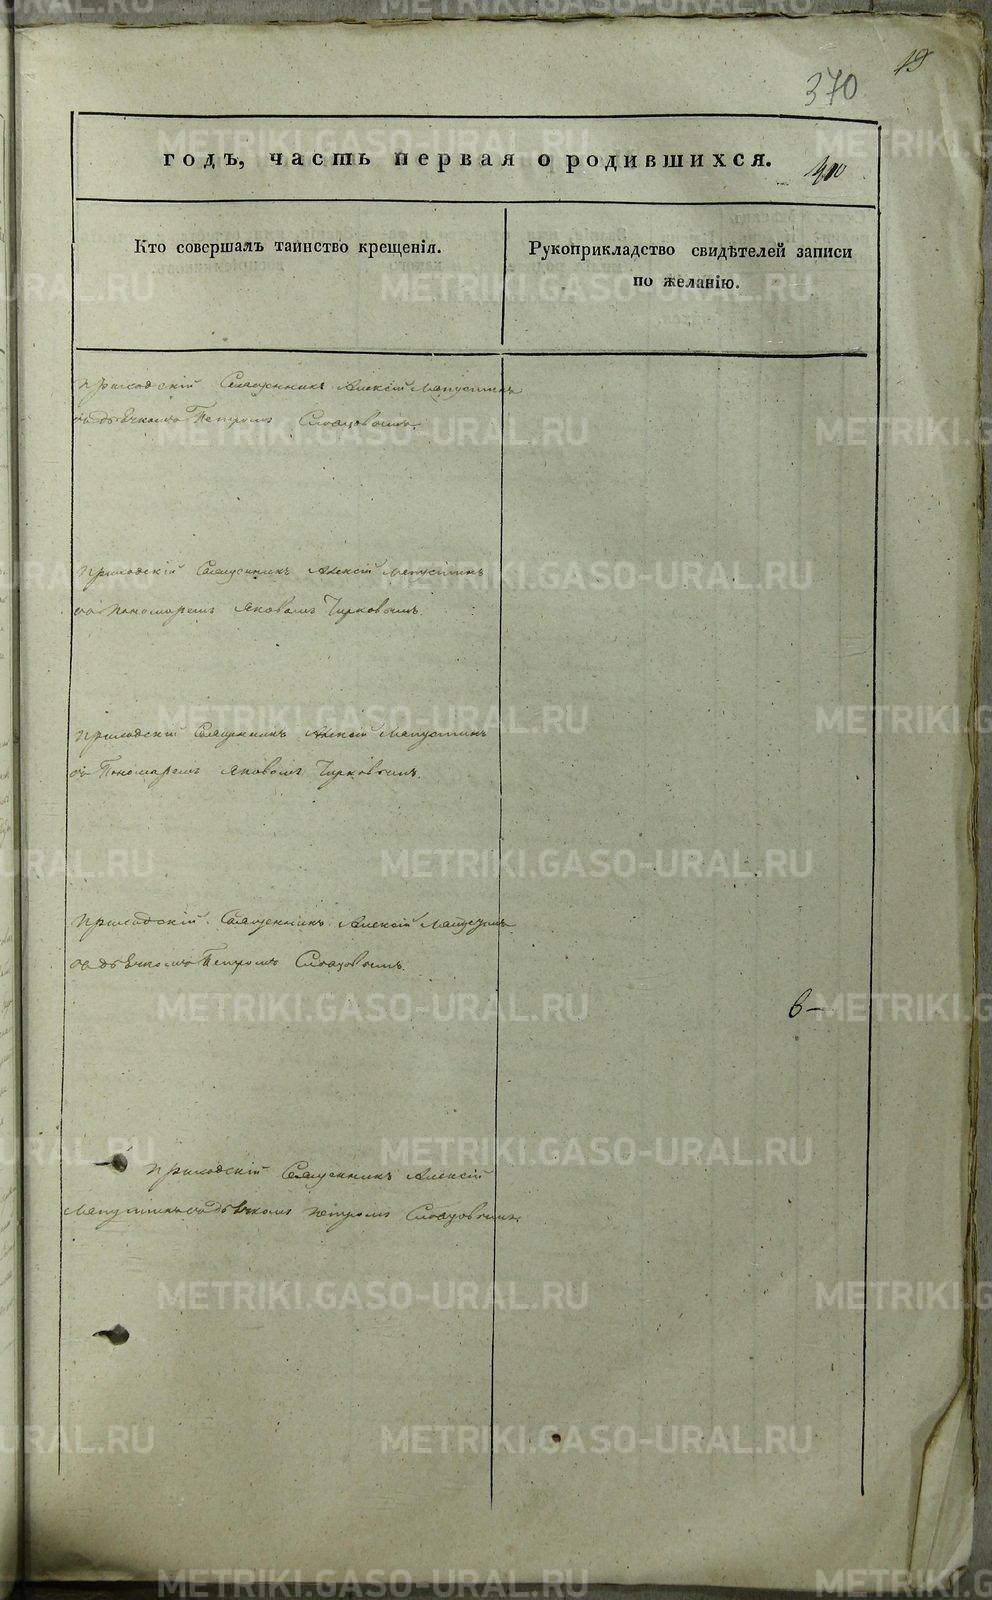 19
370
годъ, часть первая о родившихся.
Кто совершалъ таинство крещенія.
Рукоприкладство свидѣтелей записи
по желанію.
Приходскій Священникъ Алексій Мапустинъ
съ дьячкомъ Петромъ Словцовымъ.
Приходскій Священникъ Алексій Мапустинъ
съ Пономаремъ Яковомъ Чирковымъ.
Приходскій Священникъ Алексій Мапустинъ
съ Пономаремъ Яковомъ Чирковымъ.
Приходскій Священникъ Алексій Мапустинъ
съ дьячкомъ Петромъ Словцовымъ.
6-
Приходскій Священникъ Алексій
Мапустинъ съ дьячкомъ Петромъ Словцовымъ.
METRIKI.GASO-URAL.RU